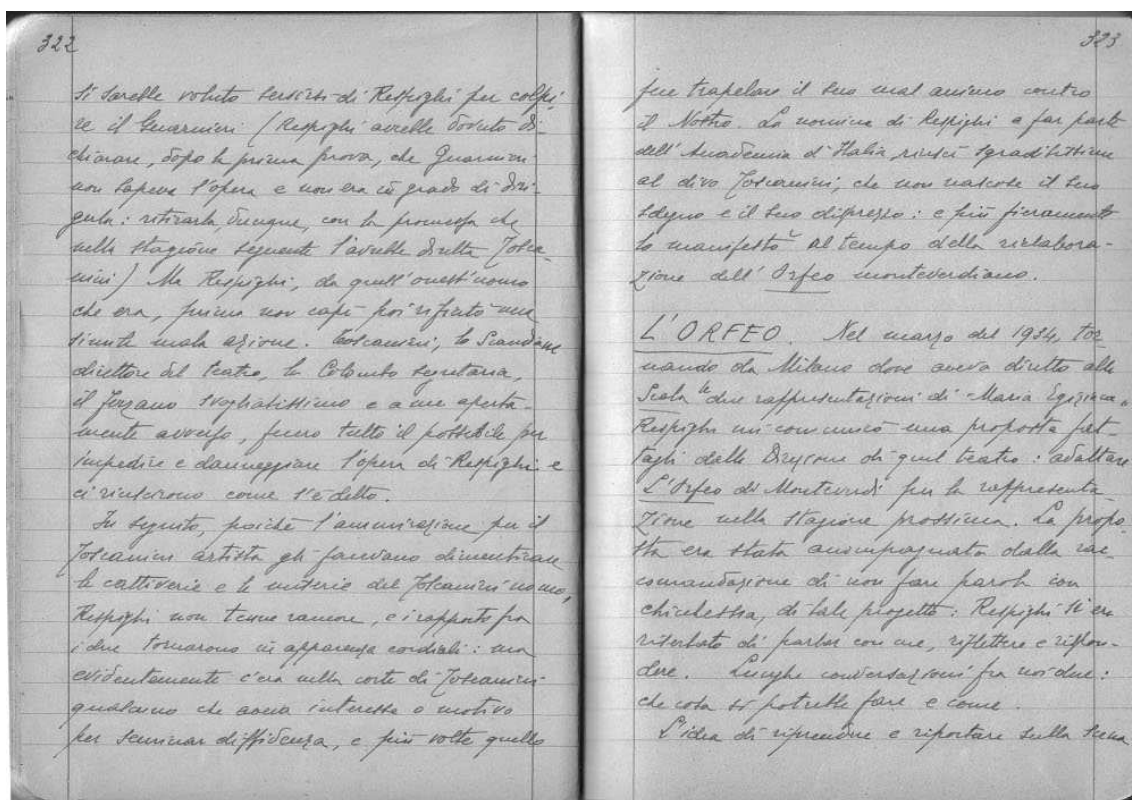 322
si sarebbe voluto servirsi di Respighi per colpi-
re il Guarnieri (Respighi avrebbe dovuto di-
chiarare, dopo la prima prova, che Guarnieri
non sapeva l'opera e non era in grado di diri-
gerla: ritirarla, dunque, con la promessa che
nella stagione seguente l'avrebbe diretta Tosca-
nini) Ma Respighi, da quell'onest'uomo
che era, prima non capì poi rifiutò una
simile mala azione. Toscanini, lo Scandiani
direttore del teatro, la Colombo segretaria,
il Forzano svogliatissimo e a me aperta-
mente avverso, fecero tutto il possibile per
impedire e danneggiare l'opera di Respighi e
ci riuscirono come s'è detto.
In seguito, poiché l'ammirazione per il
Toscanini artista gli facevano dimenticare
le cattiverie e le miserie del Toscanini uomo,
Respighi non tenne rancore, e i rapporti fra
i due tornarono in apparenza cordiali: ma
evidentemente c'era nella corte di Toscanini
qualcuno che aveva interesse o motivo
per seminar diffidenza, e più volte quello
323
fece trapelare il suo mal animo contro
il Nostro. La nomina di Respighi a far parte
dell'Accademia d'Italia, riuscì sgraditissima
al divo Toscanini, che non nascose il suo
sdegno e il suo disprezzo: e più fieramente
lo manifestò al tempo della rielabora-
zione dell'Orfeo monteverdiano.
L'ORFEO. Nel marzo del 1934, tor-
nando da Milano dove aveva diretto alla
Scala le due rappresentazioni di "Maria Egiziaca"
Respighi mi comunicò una proposta fat-
tagli dalla Direzione di quel teatro: adattare
L'Orfeo di Monteverdi per la rappresenta-
zione nella stagione prossima. La propo-
sta era stata accompagnata dalla rac-
comandazione di non fare parola con
chichessia, di tale progetto: Respighi si era
riserbato di parlar con me, riflettere e rispon-
dere. Lunghe conversazioni fra noi due:
che cosa si potrebbe fare e come.
L'idea di riprendere e riportare sulla scena